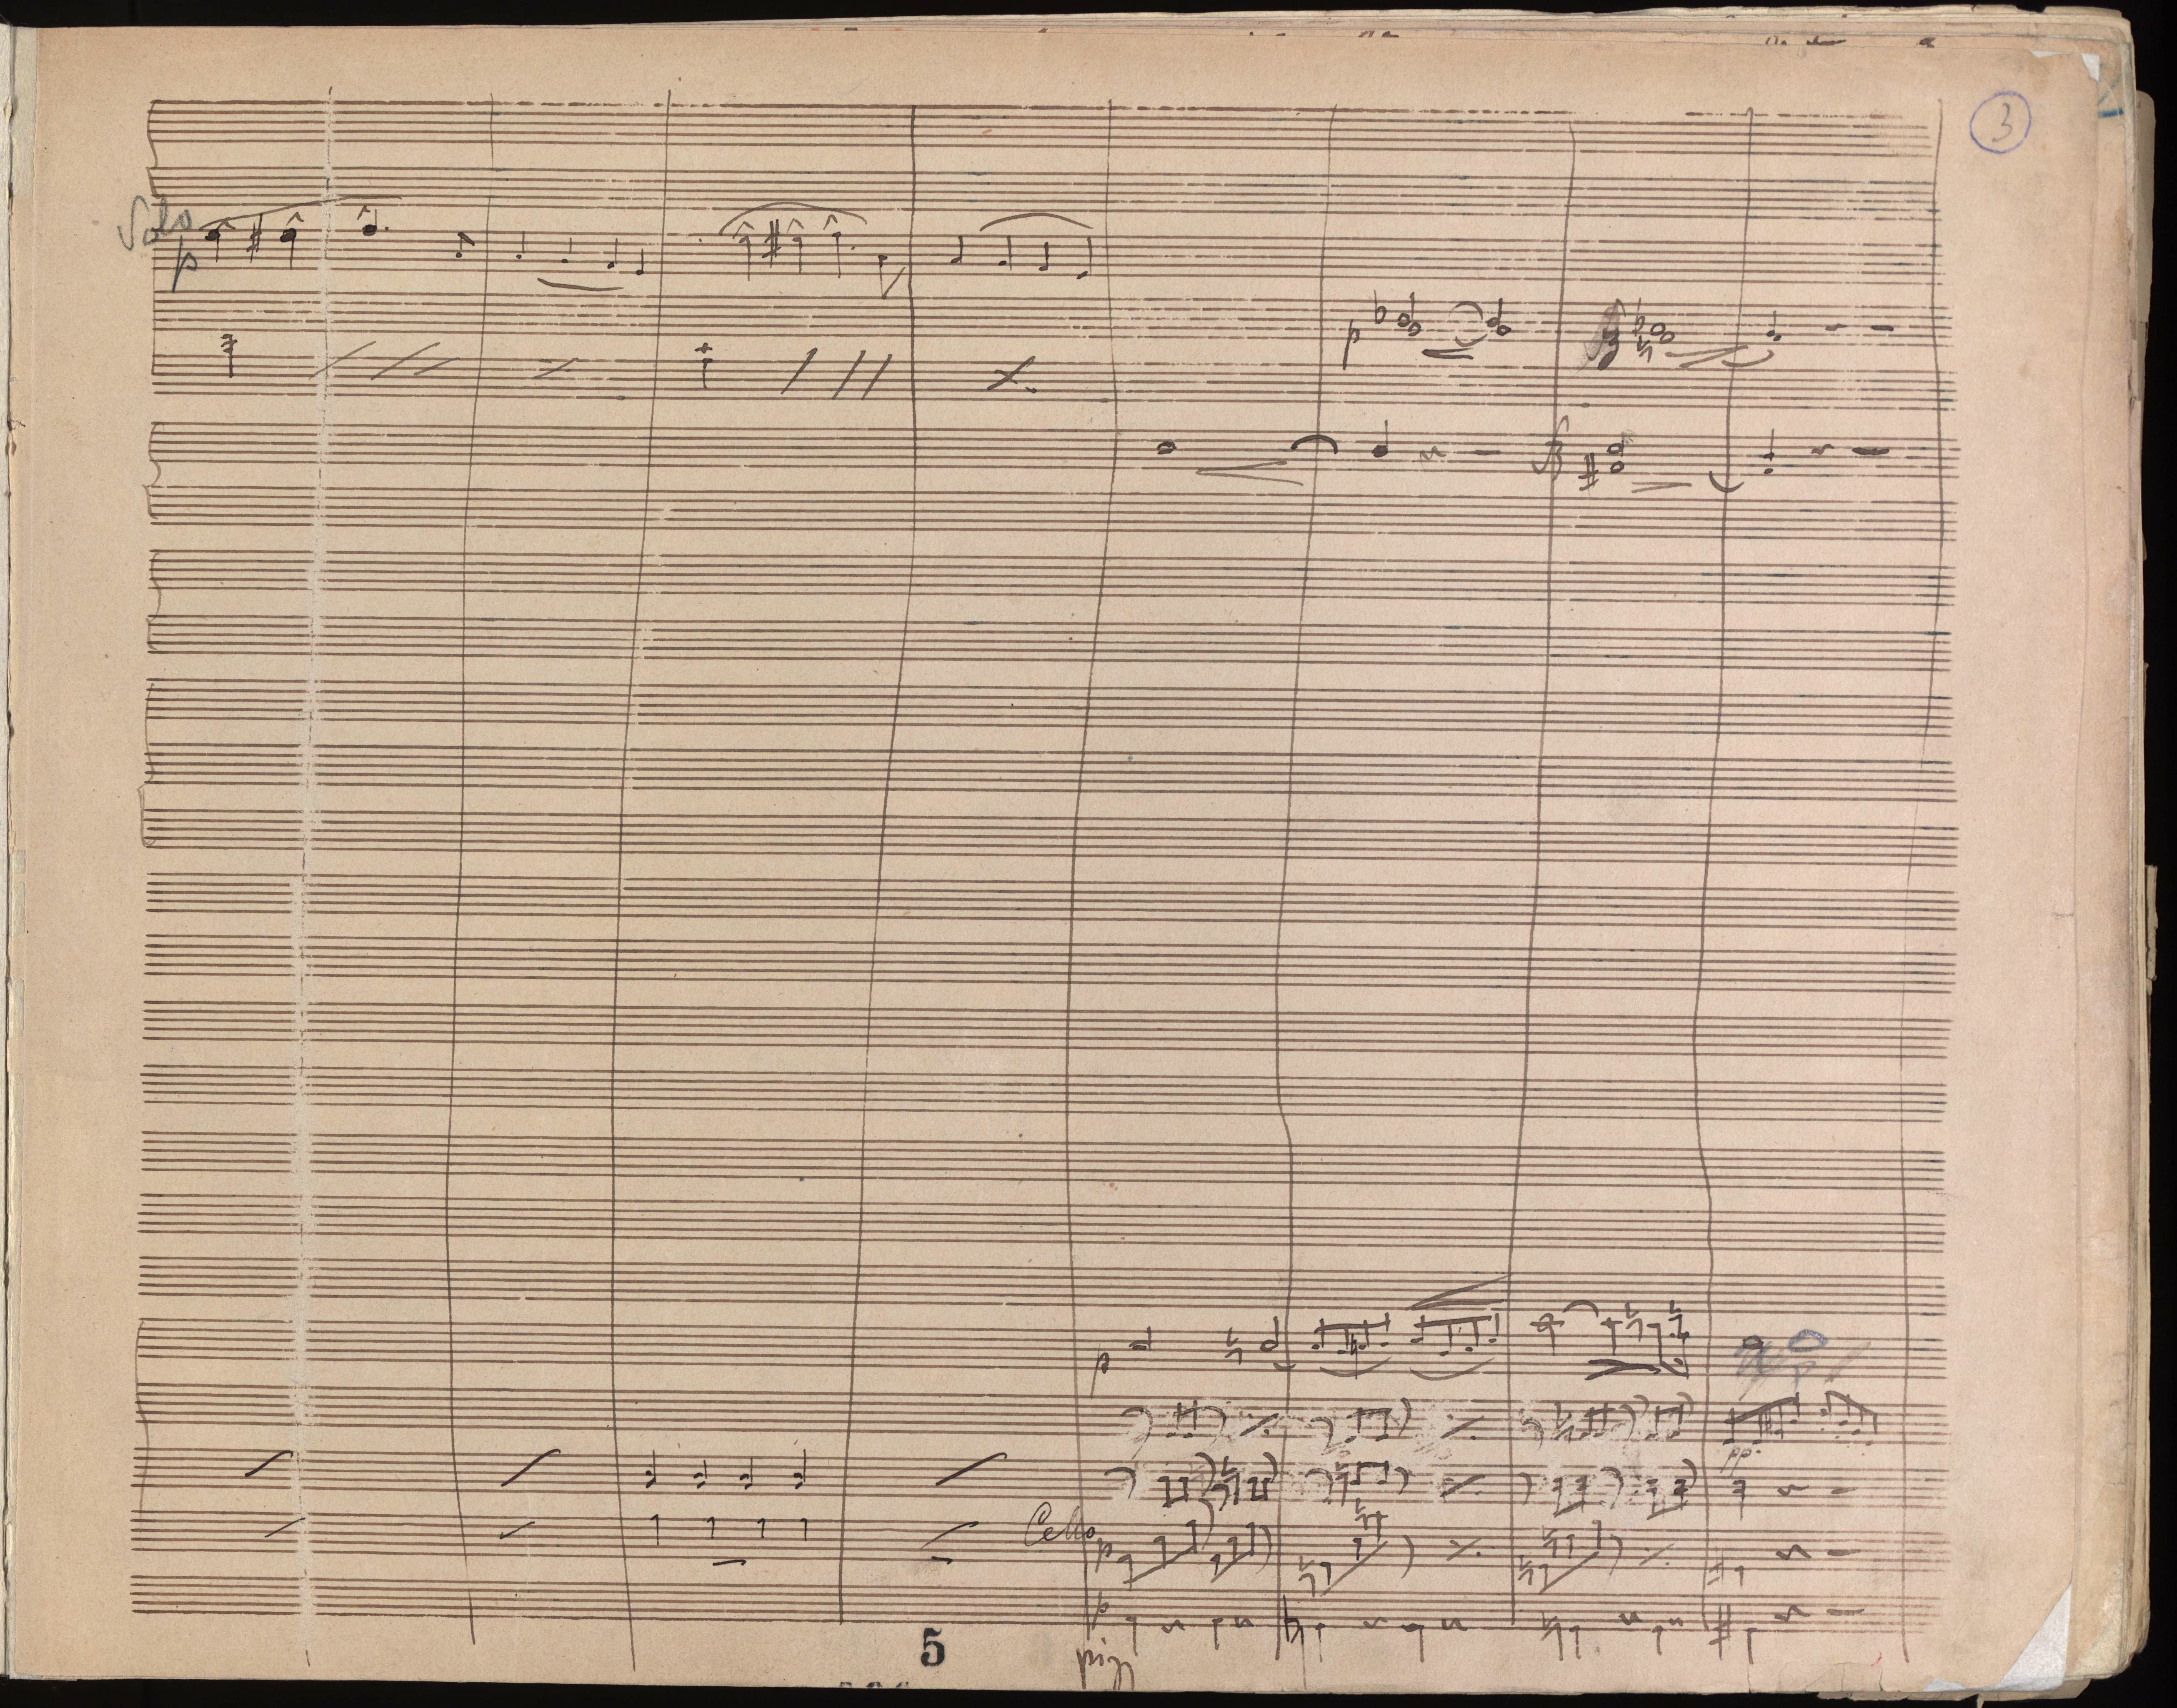 3
Solo
p
p
pp.
Cello
p
p
p
5
pizz